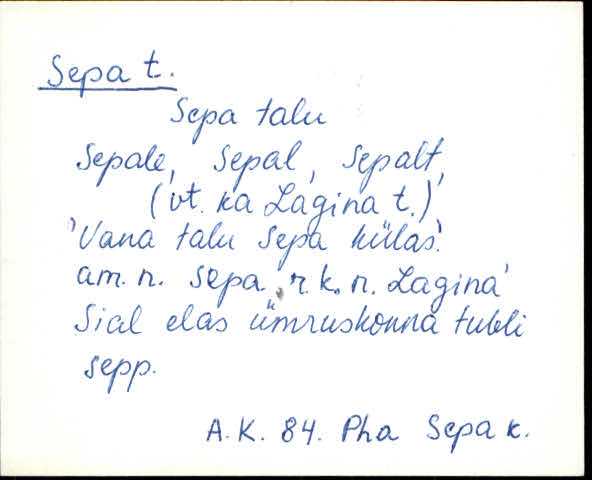 Sepa t.
Sepa talu
Sepale, Sepal, Sepalt,
(vt. ka Lagina t.)
'Vana talu Sepa külas'.
am. n. Sepa, r. k. n. Lagina'
Sial elas ümruskonna tubli
sepp.
A. K. 84. Pha Sepa k.